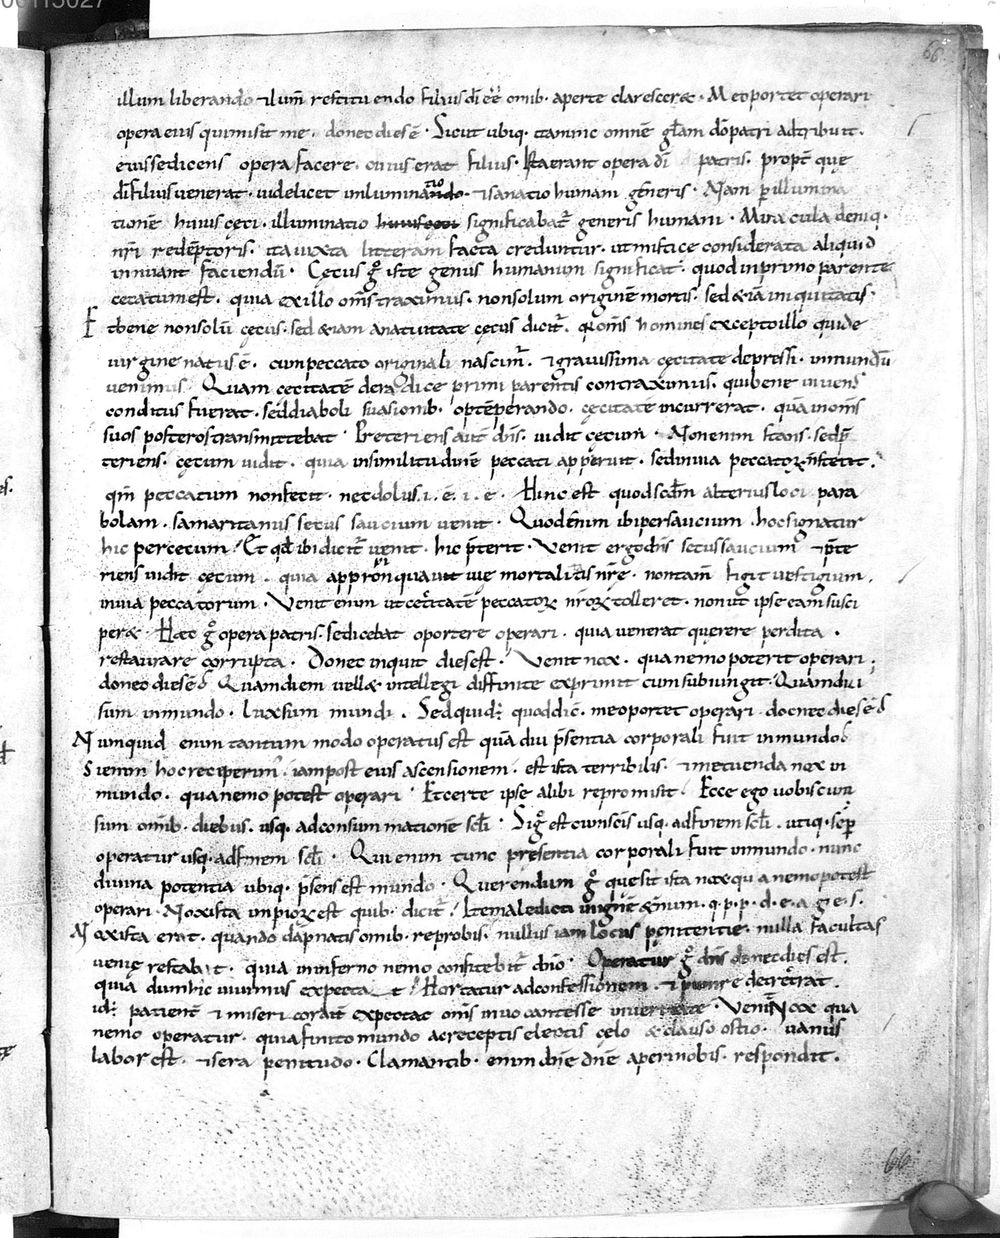 66
illum liberando ⁊ illum restituendo filius dī eē omib· aperte claresceret· Me oportet operari
opera eius qui misit me· donec dies ē· Sicut ubiq· etiam nunc omnē gl̄am dō patri adtribuit.
eius se dicens opera facere· cuius erat filius· Ista erant opera dī patris· propt̄ que
dī filius venerat· videlicet inluminatio ⁊ sanatio humani generis· Nam p illumina
tionē huius cęci· illuminatio significabat̄ generis humani· Miracula deniq·
nr̄i redēptoris· ita iuxta litteram facta creduntur· ut mistice considerata aliquid
innuant faciendū· Cęcus gͦ iste genus humanum significat· quod in primo parente
cecatum est· quia ex illo om̄s traximus· non solum originē mortis· sed etiā iniquitatis·
Et bene non solū cęcus· sed etiam a natiuitate cęcus dicit̄· qͥ om̄s homines excepto illo qui de
virgine natus ē· cum peccato originali nascim̄· ⁊ gravissima cęcitate depressi· in mundū
venimus· Quam cecitatē de radice primi parentis contraximus· qui bene uiuens
conditus fuerat· sed diaboli suasionib· optēperando· cęcitatē incurrerat· quā in om̄s
suos posteros transmittebat· Preteriens aut̄ dn̄s· vidit cęcum· Non enim stans· sed p̄
teriens· cęcum vidit· quia in similitudinē peccati apparuit· sed in via peccatoꝝ n̄ stetit.
qm̄ peccatum non fecit· nec dolus· i· ē· i· e· Hinc est quod scd̄m alterius loci para
bolam· samaritanus secus saucium venit· Quod enim ibi per saucium· hoc signatur
hic per cecum· Et qd̄ ibi dicit̄ venit· hic p̄terit· Venit ergo dn̄s secus saucium ⁊ p̄te
riens vidit cęcum· quia vie mortalitatis nr̄e· non tam̄ figit vestigium.
in via peccatorum· Venit enim ut cecitatē peccatoꝝ nr̄oꝝ tolleret· non ut ipse eam susci
peret· Hec gͦ opera patris· se dicebat oportere operari· quia venerat querere perdita·
restaurare corrupta· Donec inquit dies est· Venit nox· qua nemo poterit operari·
donec dies ē Quam diem vellet intellegi diffinite exprimit cum subiungit· Quamdiu
sum in mundo· lux sum mundi· Sed quid ē quod dic̄· me oportet operari donec dies ē
Numquid enim tantum modo operatus est quā diu p̄sentia corporali fuit in mundo
Si enim hoc reciperim̄· iam post eius ascensionem· est ista terribilis· ⁊ metuenda nox in
mundo· qua nemo potest operari· Et certe ipse alibi repromisit· Ecce ego vobiscum
sum omib· diebus· usq· ad consummationē sc̄li· Si gͦ est cum sc̄is usq· ad finem sc̄li· utiq· sēp
operatur usq· ad finem sc̄li· Qui enim tunc presentia corporali fuit in mundo· nunc
divina potentia ubiq· p̄sens est mundo· Querendum gͦ que sit ista nox qua nemo potest
operari· Nox ista impioꝝ est quib· dicit̄· Ite maledicti in ignē et̄num· q· p· p· d· e· a· g· e· s·
Nox ista erat· quando dāpnatis omib· reprobis· nullus iam locus penitentie· nulla facultas
venię restabit· quia in inferno nemo confitebit̄ dn̄o· Operatur gͦ dn̄s donec dies est.
quia dum hic vivimus expectat Hortatur ad confessionem· ⁊
id· patient̄ ⁊ misericordit̄ expectat om̄s in vocantes se in veritate· Venit nox qua
nemo operatur· quia finito mundo ac receptis electis cęlo et clauso ostio· vanus
labor est· ⁊ sera penitudo· Clamantib· enim dn̄e dn̄e aperi nobis· respondit.
66